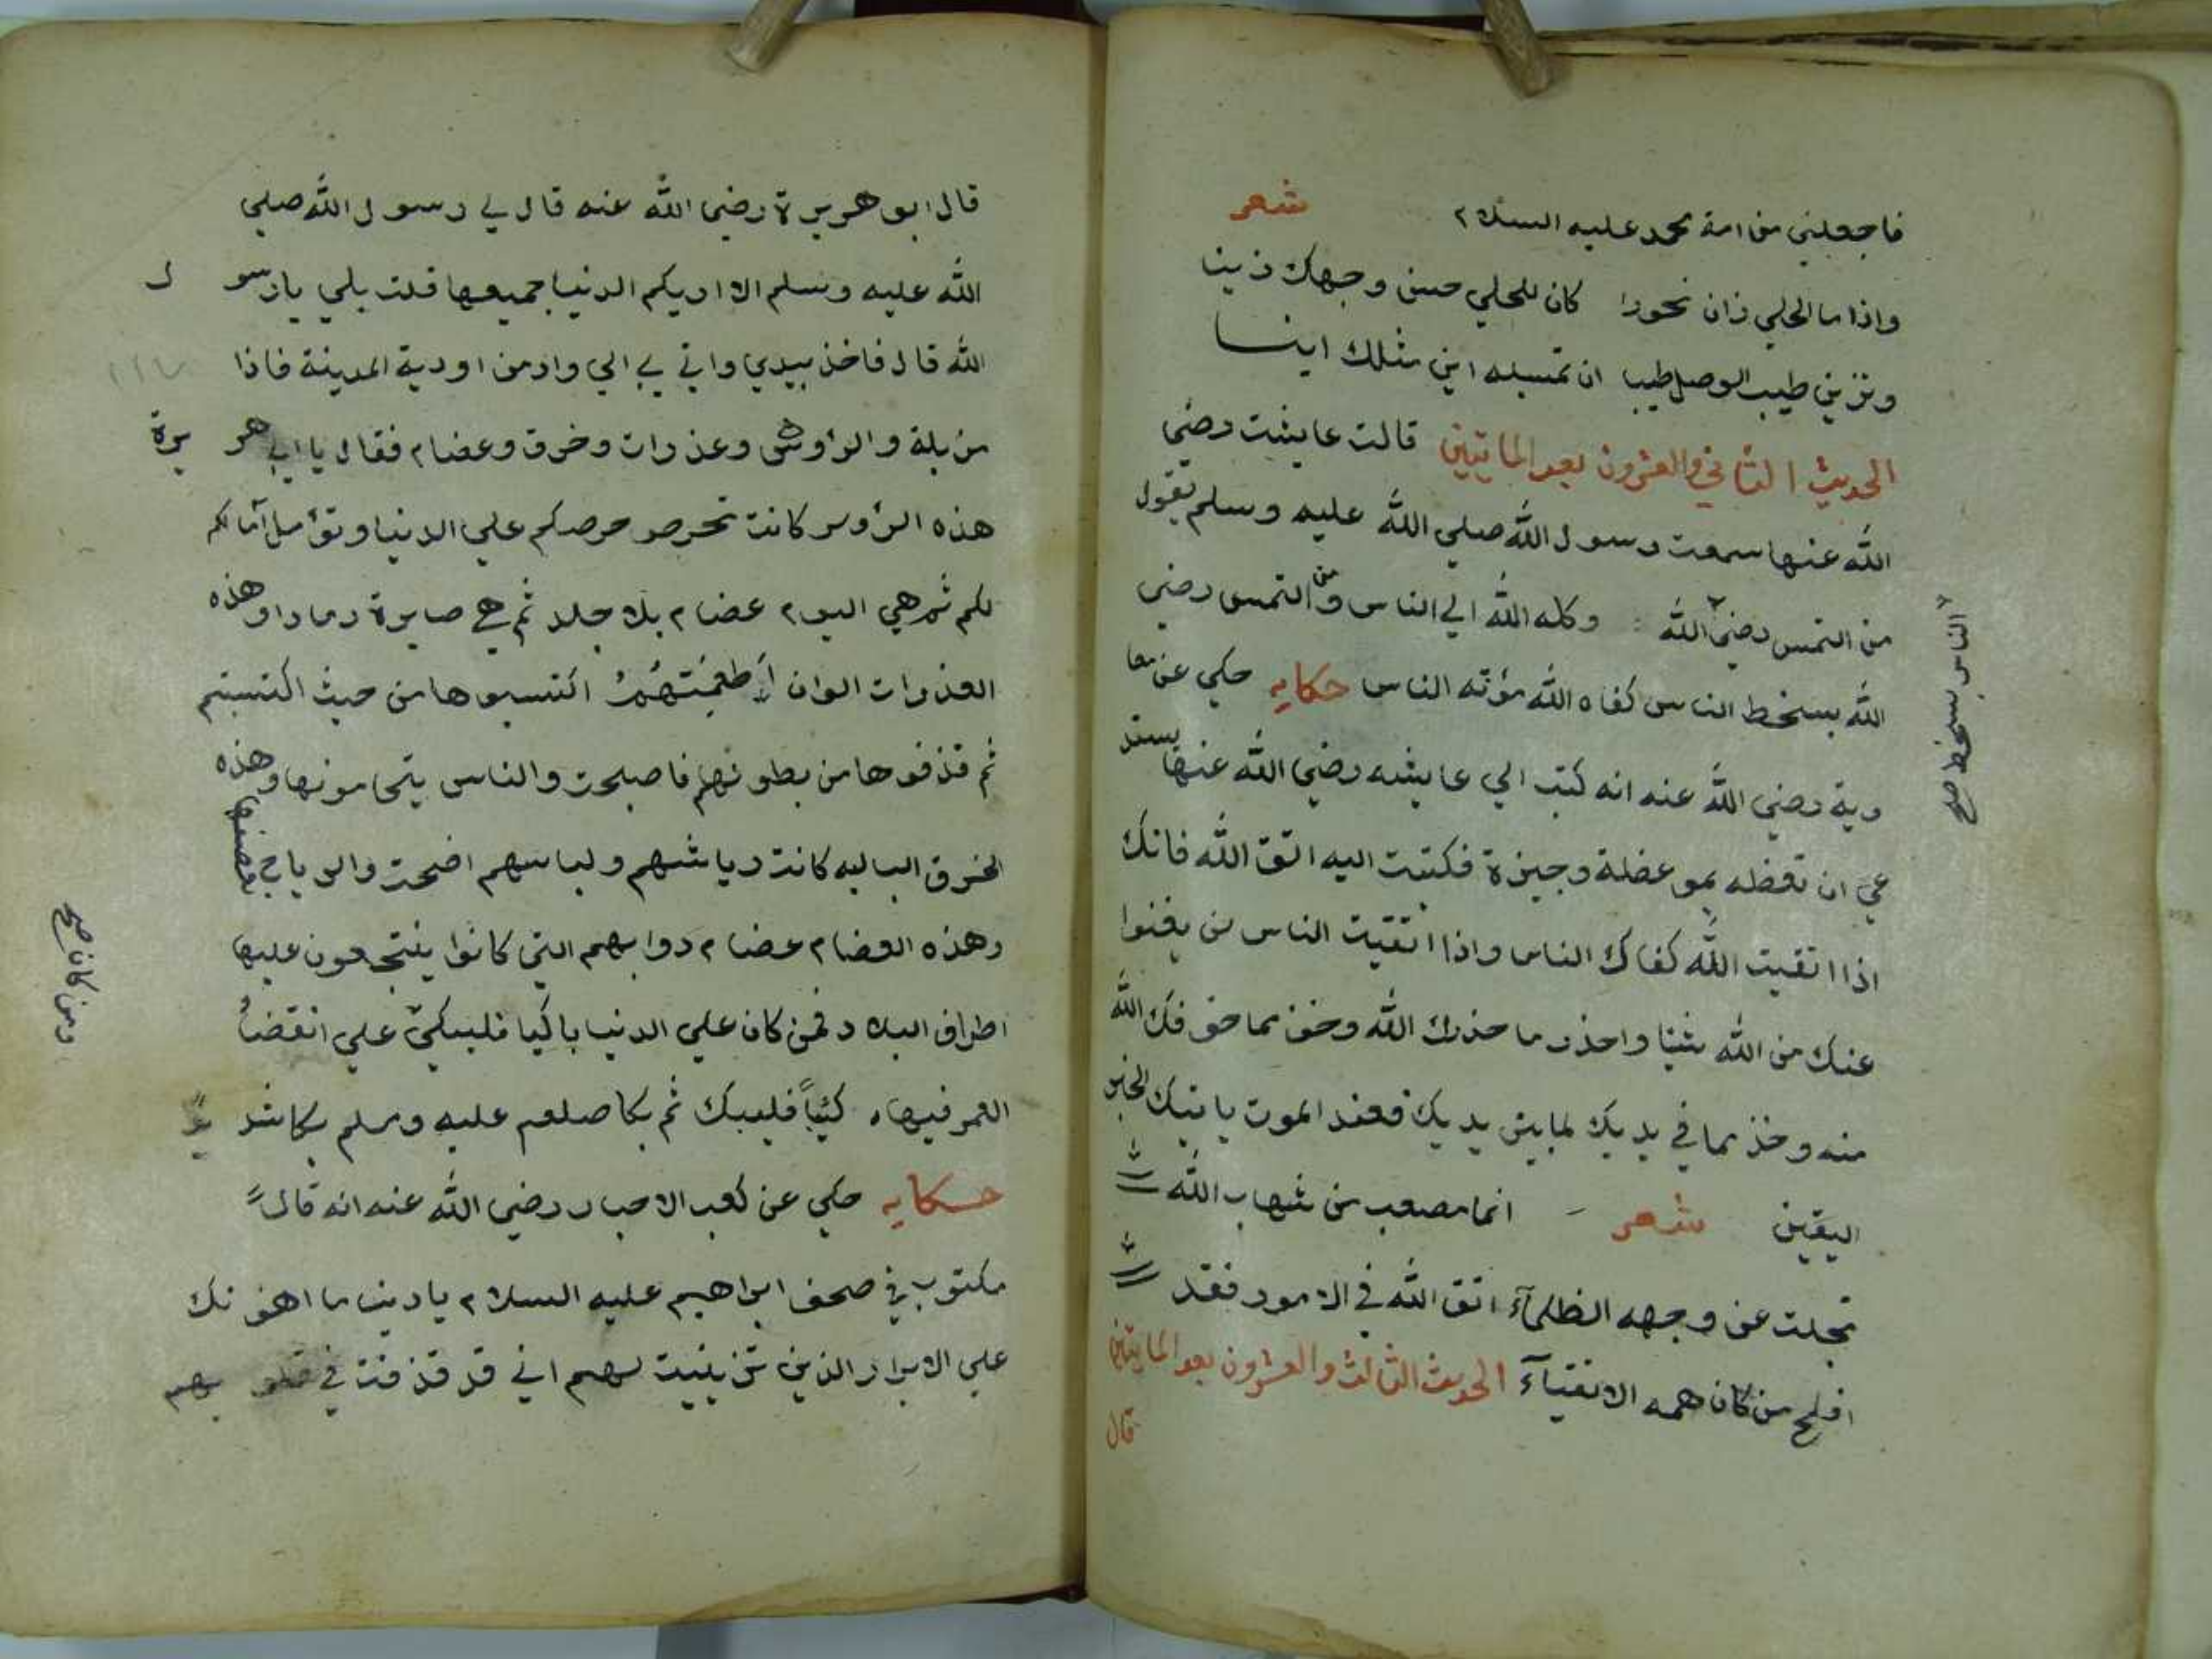 فاجعلني من امة محمد عليه السلام شعر
واذا ما الحلي زان نحورا كان للحلي حسن وجهك زينا
وتزيني طيب الوصل طيبا ان تمسيه اين مثلك اينا
الحديث الثاني والعشرون بعد الماتيين قالت عايشت رضي
الله عنها سمعت رسول الله صلي الله عليه وسلم يقول
من التمس رضي الله وكله الله الي الناس ومن التمس رضي
الله بسخط الناس كفاه الله مؤنه الناس حكايه حكي عن معا
وية رضي الله عنه انه كتب الي عايشه رضي الله عنها يستد
عي ان تعظه بموعضلة وجيزة فكتبت اليه اتق الله فانك
اذا اتقيت الله كفاك الناس واذا اتقيت الناس لن يغنوا
عنك من الله شيئا واحذر ما حذرك الله وخف مما خوفك الله
منه وخذ مما في يديك لما بين يديك فعند الموت ياتيك الخبر
اليقين شعر انما مصعب من شهاب الله
تجلت عن وجهه الظلمآء اتق الله في الامور فقد
افلح من كان همه الاتقيآء الحديث الثالث والعشرون بعد المايتين
قال
الناس بسخط صح
قال ابو هريرة رضي الله عنه قال لي رسول الله صلي
الله عليه وسلم الا اريكم الدنيا جميعها قلت بلي يا رسول
الله قال فاخذ بيدي واتي بي الي واد من اودية المدينة فاذا
مزبلة والرؤس وعذرات وخرق وعضام فقال يا ابي هريرة
هذه الرؤس كانت تحرص حرصكم علي الدنيا وتؤمل آمالكم
لكم ثم هي اليوم عضام بلا جلد ثم هي صايرة رمادا وهذه
العذرات الوان أطعمتهم اكتسبوها من حيث اكتسبتم
ثم قذفوها من بطونهم فاصبحت والناس يتحامونها وهذه
الخرق الباليه كانت رياشهم ولباسهم اضحت والرياح تصفقها
وهذه العضام عضام دوابهم التي كانوا ينتجعون عليها
اطراف البلاد فمن كان علي الدنيا باكيا فليبكي علي انقضا
العمر فيها كئيبا فليبك ثم بكا صلعم عليه وسلم بكا شد
حكايه حكي عن كعب الاحبار رضي الله عنه انه قال
مكتوب في صحف ابراهيم عليه السلام يا دنيا ما اهونك
علي الابرار الذين تزينيت لهم اني قد قذفت في قلوبهم
ومن كانا صح